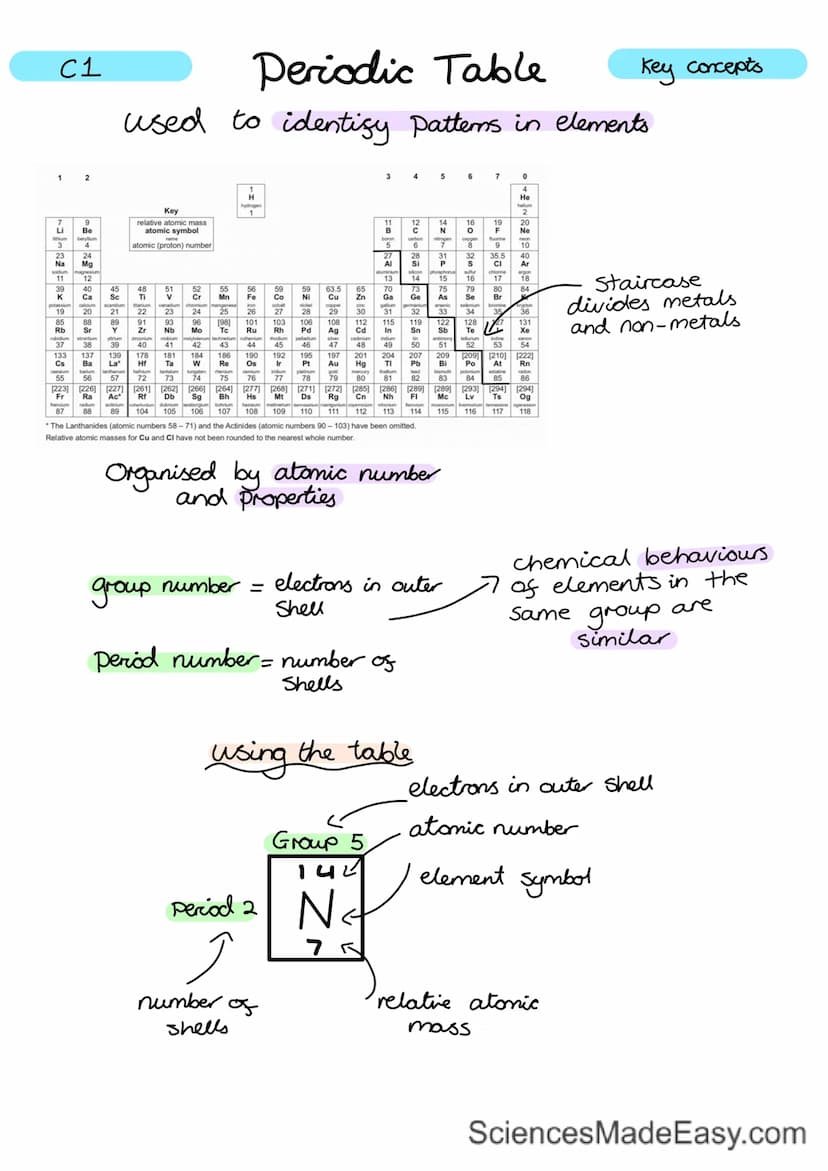 C1
Periodic Table
Key concepts
used to identify patterns in elements
1 2 3 4 5 6 7 0
1 4
H He
hydrogen helium
1 2
Key
relative atomic mass
atomic symbol
name
atomic (proton) number
7 9 11 12 14 16 19 20
Li Be B C N O F Ne
lithium beryllium boron carbon nitrogen oxygen fluorine neon
3 4 5 6 7 8 9 10
23 24 27 28 31 32 35.5 40
Na Mg Al Si P S Cl Ar
sodium magnesium aluminium silicon phosphorus sulfur chlorine argon
11 12 13 14 15 16 17 18
39 40 45 48 51 52 55 56 59 59 63.5 65 70 73 75 79 80 84
K Ca Sc Ti V Cr Mn Fe Co Ni Cu Zn Ga Ge As Se Br
potassium calcium scandium titanium vanadium chromium manganese iron cobalt nickel copper zinc gallium germanium arsenic selenium bromine krypton
19 20 21 22 23 24 25 26 27 28 29 30 31 32 33 34 35 36
85 88 89 91 93 96 [98] 101 103 106 108 112 115 119 122 128 127 131
Rb Sr Y Zr Nb Mo Tc Ru Rh Pd Ag Cd In Sn Sb Te I Xe
rubidium strontium yttrium zirconium niobium molybdenum technetium ruthenium rhodium palladium silver cadmium indium tin antimony tellurium iodine xenon
37 38 39 40 41 42 43 44 45 46 47 48 49 50 51 52 53 54
133 137 139 178 181 184 186 190 192 195 197 201 204 207 209 [209] [210] [222]
Cs Ba La* Hf Ta W Re Os Ir Pt Au Hg Tl Pb Bi Po At Rn
caesium barium lanthanum hafnium tantalum tungsten rhenium osmium iridium platinum gold mercury thallium lead bismuth polonium astatine radon
55 56 57 72 73 74 75 76 77 78 79 80 81 82 83 84 85 86
[223] [226] [227] [261] [262] [266] [264] [277] [268] [271] [272] [285] [286] [289] [289] [293] [294] [294]
Fr Ra Ac* Rf Db Sg Bh Hs Mt Ds Rg Cn Nh Fl Mc Lv Ts Og
francium radium actinium rutherfordium dubnium seaborgium bohrium hassium meitnerium darmstadtium roentgenium copernicium nihonium flerovium moscovium livermorium tennessine oganesson
87 88 89 104 105 106 107 108 109 110 111 112 113 114 115 116 117 118
* The Lanthanides (atomic numbers 58 – 71) and the Actinides (atomic numbers 90 – 103) have been omitted.
Relative atomic masses for Cu and Cl have not been rounded to the nearest whole number.
Staircase
divides metals
and non-metals
Organised by atomic number
and properties
group number = electrons in outer
shell
chemical behaviours
of elements in the
same group are
similar
period number = number of
shells
using the table
electrons in outer shell
Group 5
atomic number
14
element symbol
Period 2
N
7
number of
shells
relative atomic
mass
SciencesMadeEasy.com